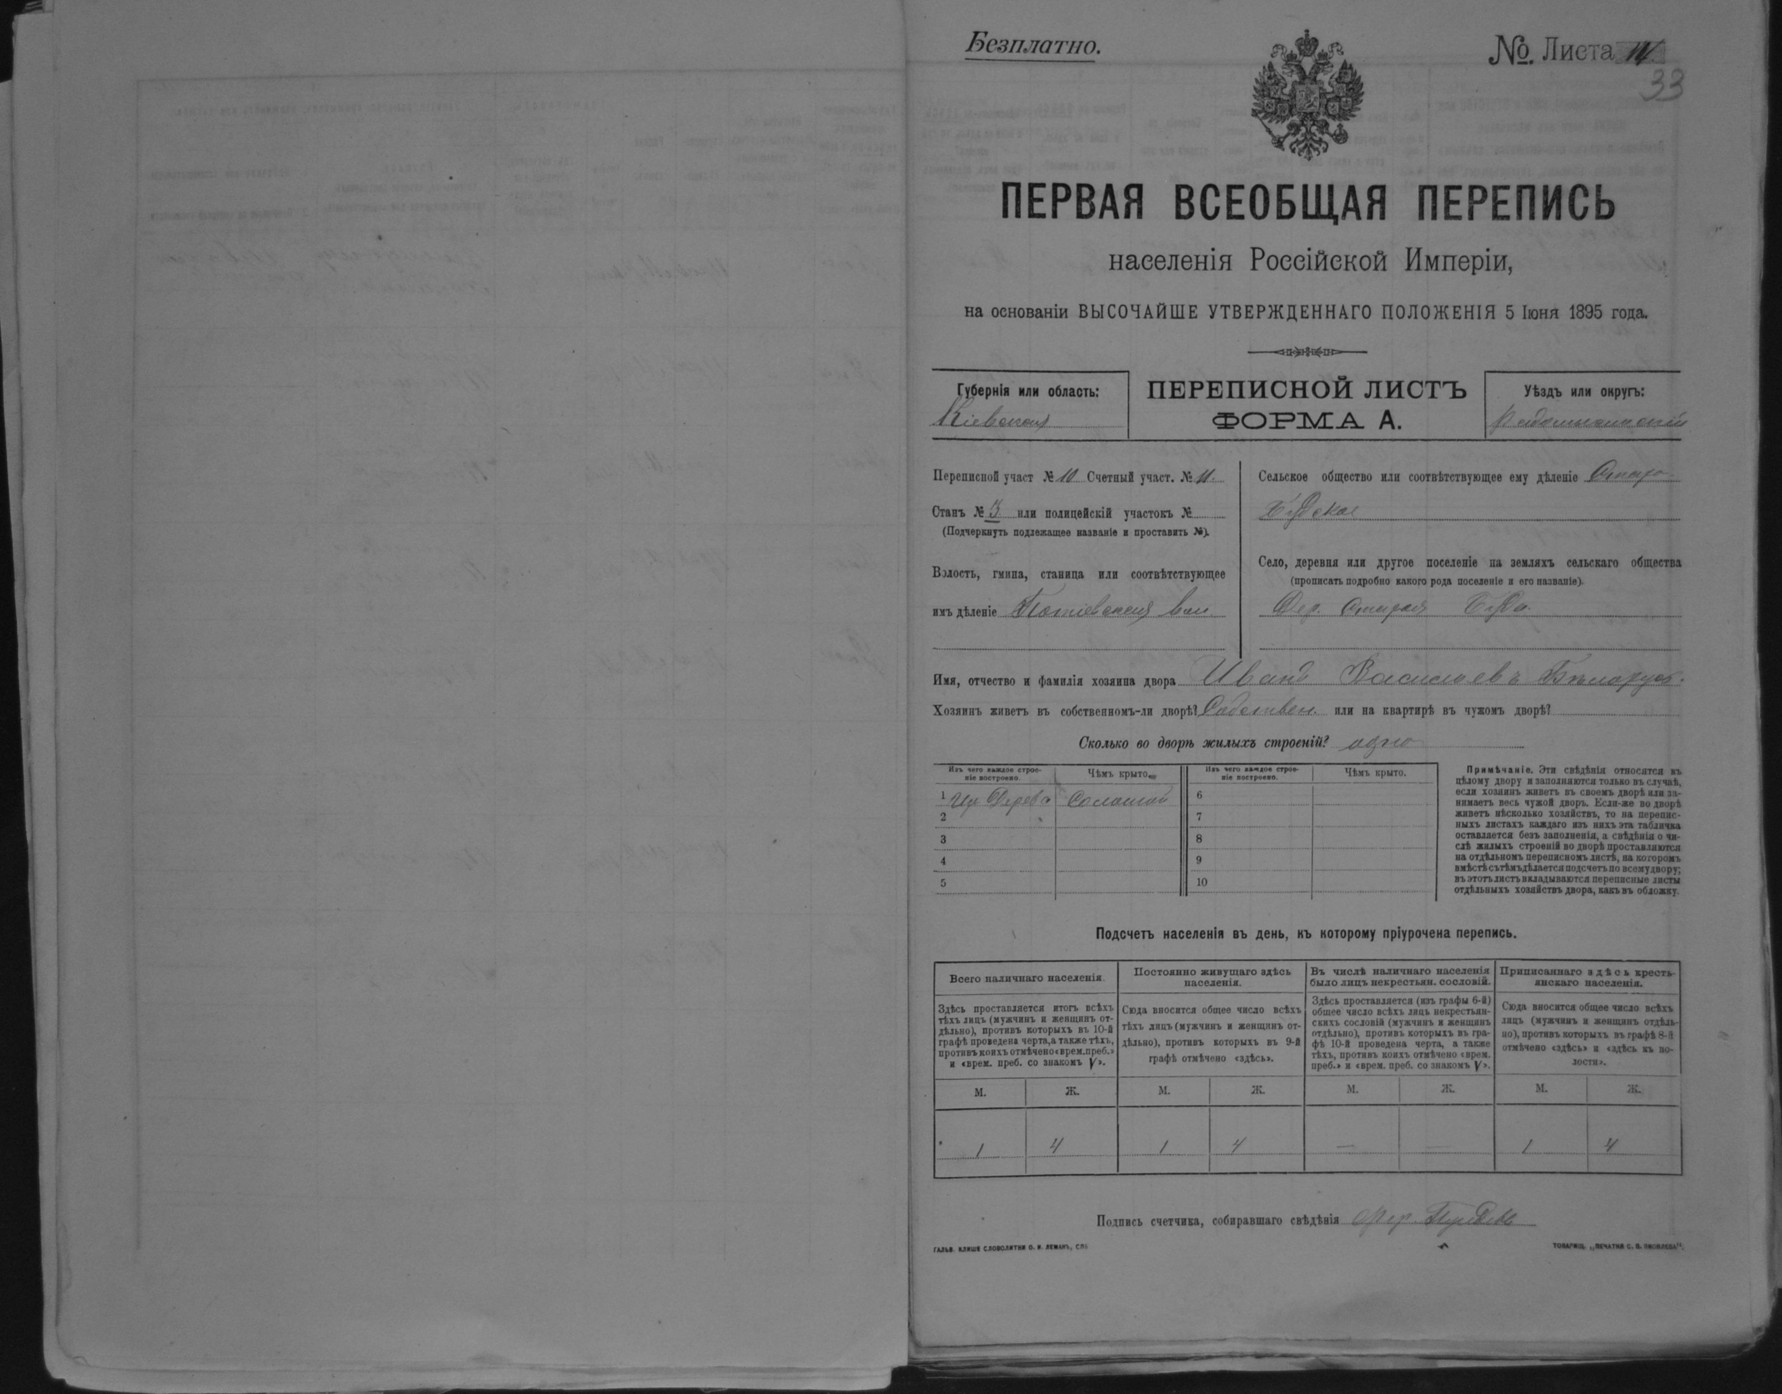 Безплатно.
№ Листа 14
33
ПЕРВАЯ ВСЕОБЩАЯ ПЕРЕПИСЬ
населенія Россійской Имперіи,
на основаніи ВЫСОЧАЙШЕ УТВЕРЖДЕННАГО ПОЛОЖЕНІЯ 5 Іюня 1895 года.
Губернія или область:
Кіевская
ПЕРЕПИСНОЙ ЛИСТЪ
ФОРМА А.
Уѣздъ или округъ:
Радомысльскій
Переписной участ № 10 Счетный участ. № 11.
Станъ № 3 или полицейскій участокъ №
(Подчеркнуть подлежащее названіе и проставить №).
Волость, гмина, станица или соотвѣтствующее
имъ дѣленіе Потіевская вол
Сельское общество или соотвѣтствующее ему дѣленіе Старо-
Будское
Село, деревня или другое поселеніе на земляхъ сельскаго общества
(прописать подробно какого рода поселеніе и его названіе).
Дер. Старая Буда.
Имя, отчество и фамилія хозяина двора Иванъ Васильевъ Бѣлорусъ.
Хозяинъ живетъ въ собственномъ-ли дворѣ? Собствен. или на квартирѣ въ чужомъ дворѣ?
Сколько во дворѣ жилыхъ строеній? одно
Изъ чего каждое строе-
ніе построено.
Чѣмъ крыто.
Изъ чего каждое строе-
ніе построено.
Чѣмъ крыто.
1 Изъ Дерева Соломой 6
2 7
3 8
4 9
5 10
Примѣчаніе. Эти свѣдѣнія относятся къ
цѣлому двору и заполняются только въ случаѣ,
если хозяинъ живетъ въ своемъ дворѣ или за-
нимаетъ весь чужой дворъ. Если-же во дворѣ
живетъ нѣсколько хозяйствъ, то на перепис-
ныхъ листахъ каждаго изъ нихъ эта табличка
оставляется безъ заполненія, а свѣдѣнія о чи-
слѣ жилыхъ строеній во дворѣ проставляются
на отдѣльномъ переписномъ листѣ, на которомъ
вмѣстѣ съ тѣмъ дѣлается подсчетъ по всему двору;
въ этотъ листъ вкладываются переписные листы
отдѣльныхъ хозяйствъ двора, какъ въ обложку.
Подсчетъ населенія въ день, къ которому пріурочена перепись.
Всего наличнаго населенія.
Здѣсь проставляется итогъ всѣхъ
тѣхъ лицъ (мужчинъ и женщинъ от-
дѣльно), противъ которыхъ въ 10-й
графѣ проведена черта, а также тѣхъ,
противъ коихъ отмѣчено «врем. преб.»
и «врем. преб. со знакомъ V».
Постоянно живущаго здѣсь
населенія.
Сюда вносится общее число всѣхъ
тѣхъ лицъ (мужчинъ и женщинъ от-
дѣльно), противъ которыхъ въ 9-й
графѣ отмѣчено «здѣсь».
Въ числѣ наличнаго населенія
было лицъ некрестьян. сословій.
Здѣсь проставляется (изъ графы 6-й)
общее число всѣхъ лицъ некрестьян-
скихъ сословій (мужчинъ и женщинъ
отдѣльно), противъ которыхъ въ гра-
фѣ 10-й проведена черта, а также
тѣхъ, противъ коихъ отмѣчено «врем.
преб.» и «врем. преб. со знакомъ V».
Приписаннаго здѣсь кресть-
янскаго населенія.
Сюда вносится общее число всѣхъ
лицъ (мужчинъ и женщинъ отдѣль-
но), противъ которыхъ въ графѣ 8-й
отмѣчено «здѣсь» и «здѣсь въ во-
лости».
М. Ж. М. Ж. М. Ж. М. Ж.
1 4 1 4 — — 1 4
Подпись счетчика, собиравшаго свѣдѣнія
ГАЛЬВ. КЛИШЕ СЛОВОЛИТНИ О. И. ЛЕМАНЪ, СПБ
ТОВАРИЩ. „ПЕЧАТНЯ С. П. ЯКОВЛЕВА".